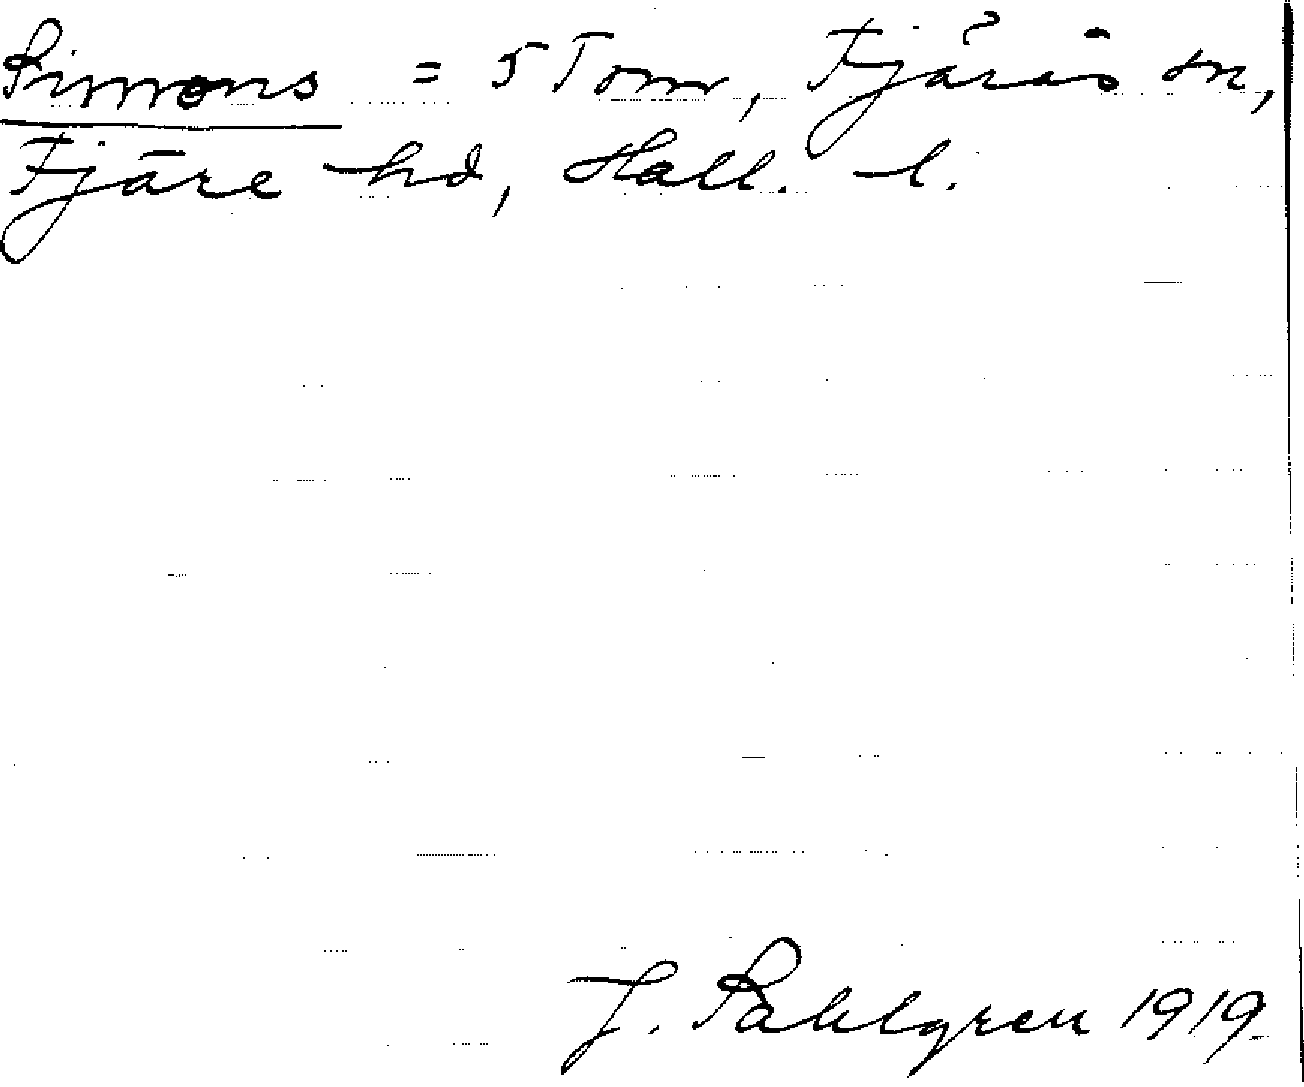 Simons = 5 Tom, Fjärås sn,
Fjäre hd, Hall. l.
J. Sahlgren 1919